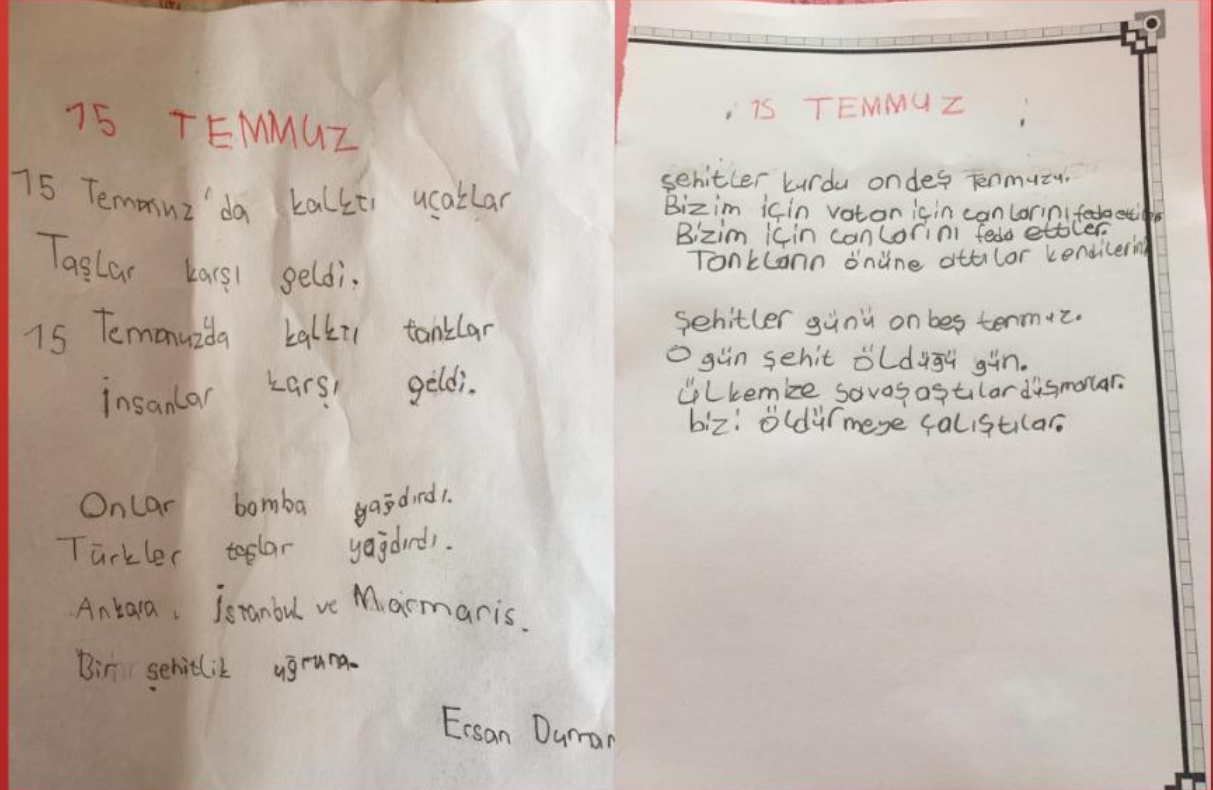 15 TEMMUZ
15 Temmuz'da kalktı uçaklar
Taşlar karşı geldi.
15 Temmuz'da kalktı tanklar
İnsanlar karşı geldi.
Onlar bomba yağdırdı.
Türkler taşlar yağdırdı.
Ankara, İstanbul ve Marmaris.
Bir şehitlik uğruna.
Ersan Duman
15 TEMMUZ
şehitler kurdu ondeş Tenmuzu.
Bizim için vatan için canlarını feda ettiler
Bizim için canlarını feda ettiler.
Tankların önüne attılar kendilerini
Şehitler günü onbeş temmuz.
O gün şehit öldüğü gün.
ülkemize savaşaştılar düşmanlar.
bizi öldürmeye çalıştılar.